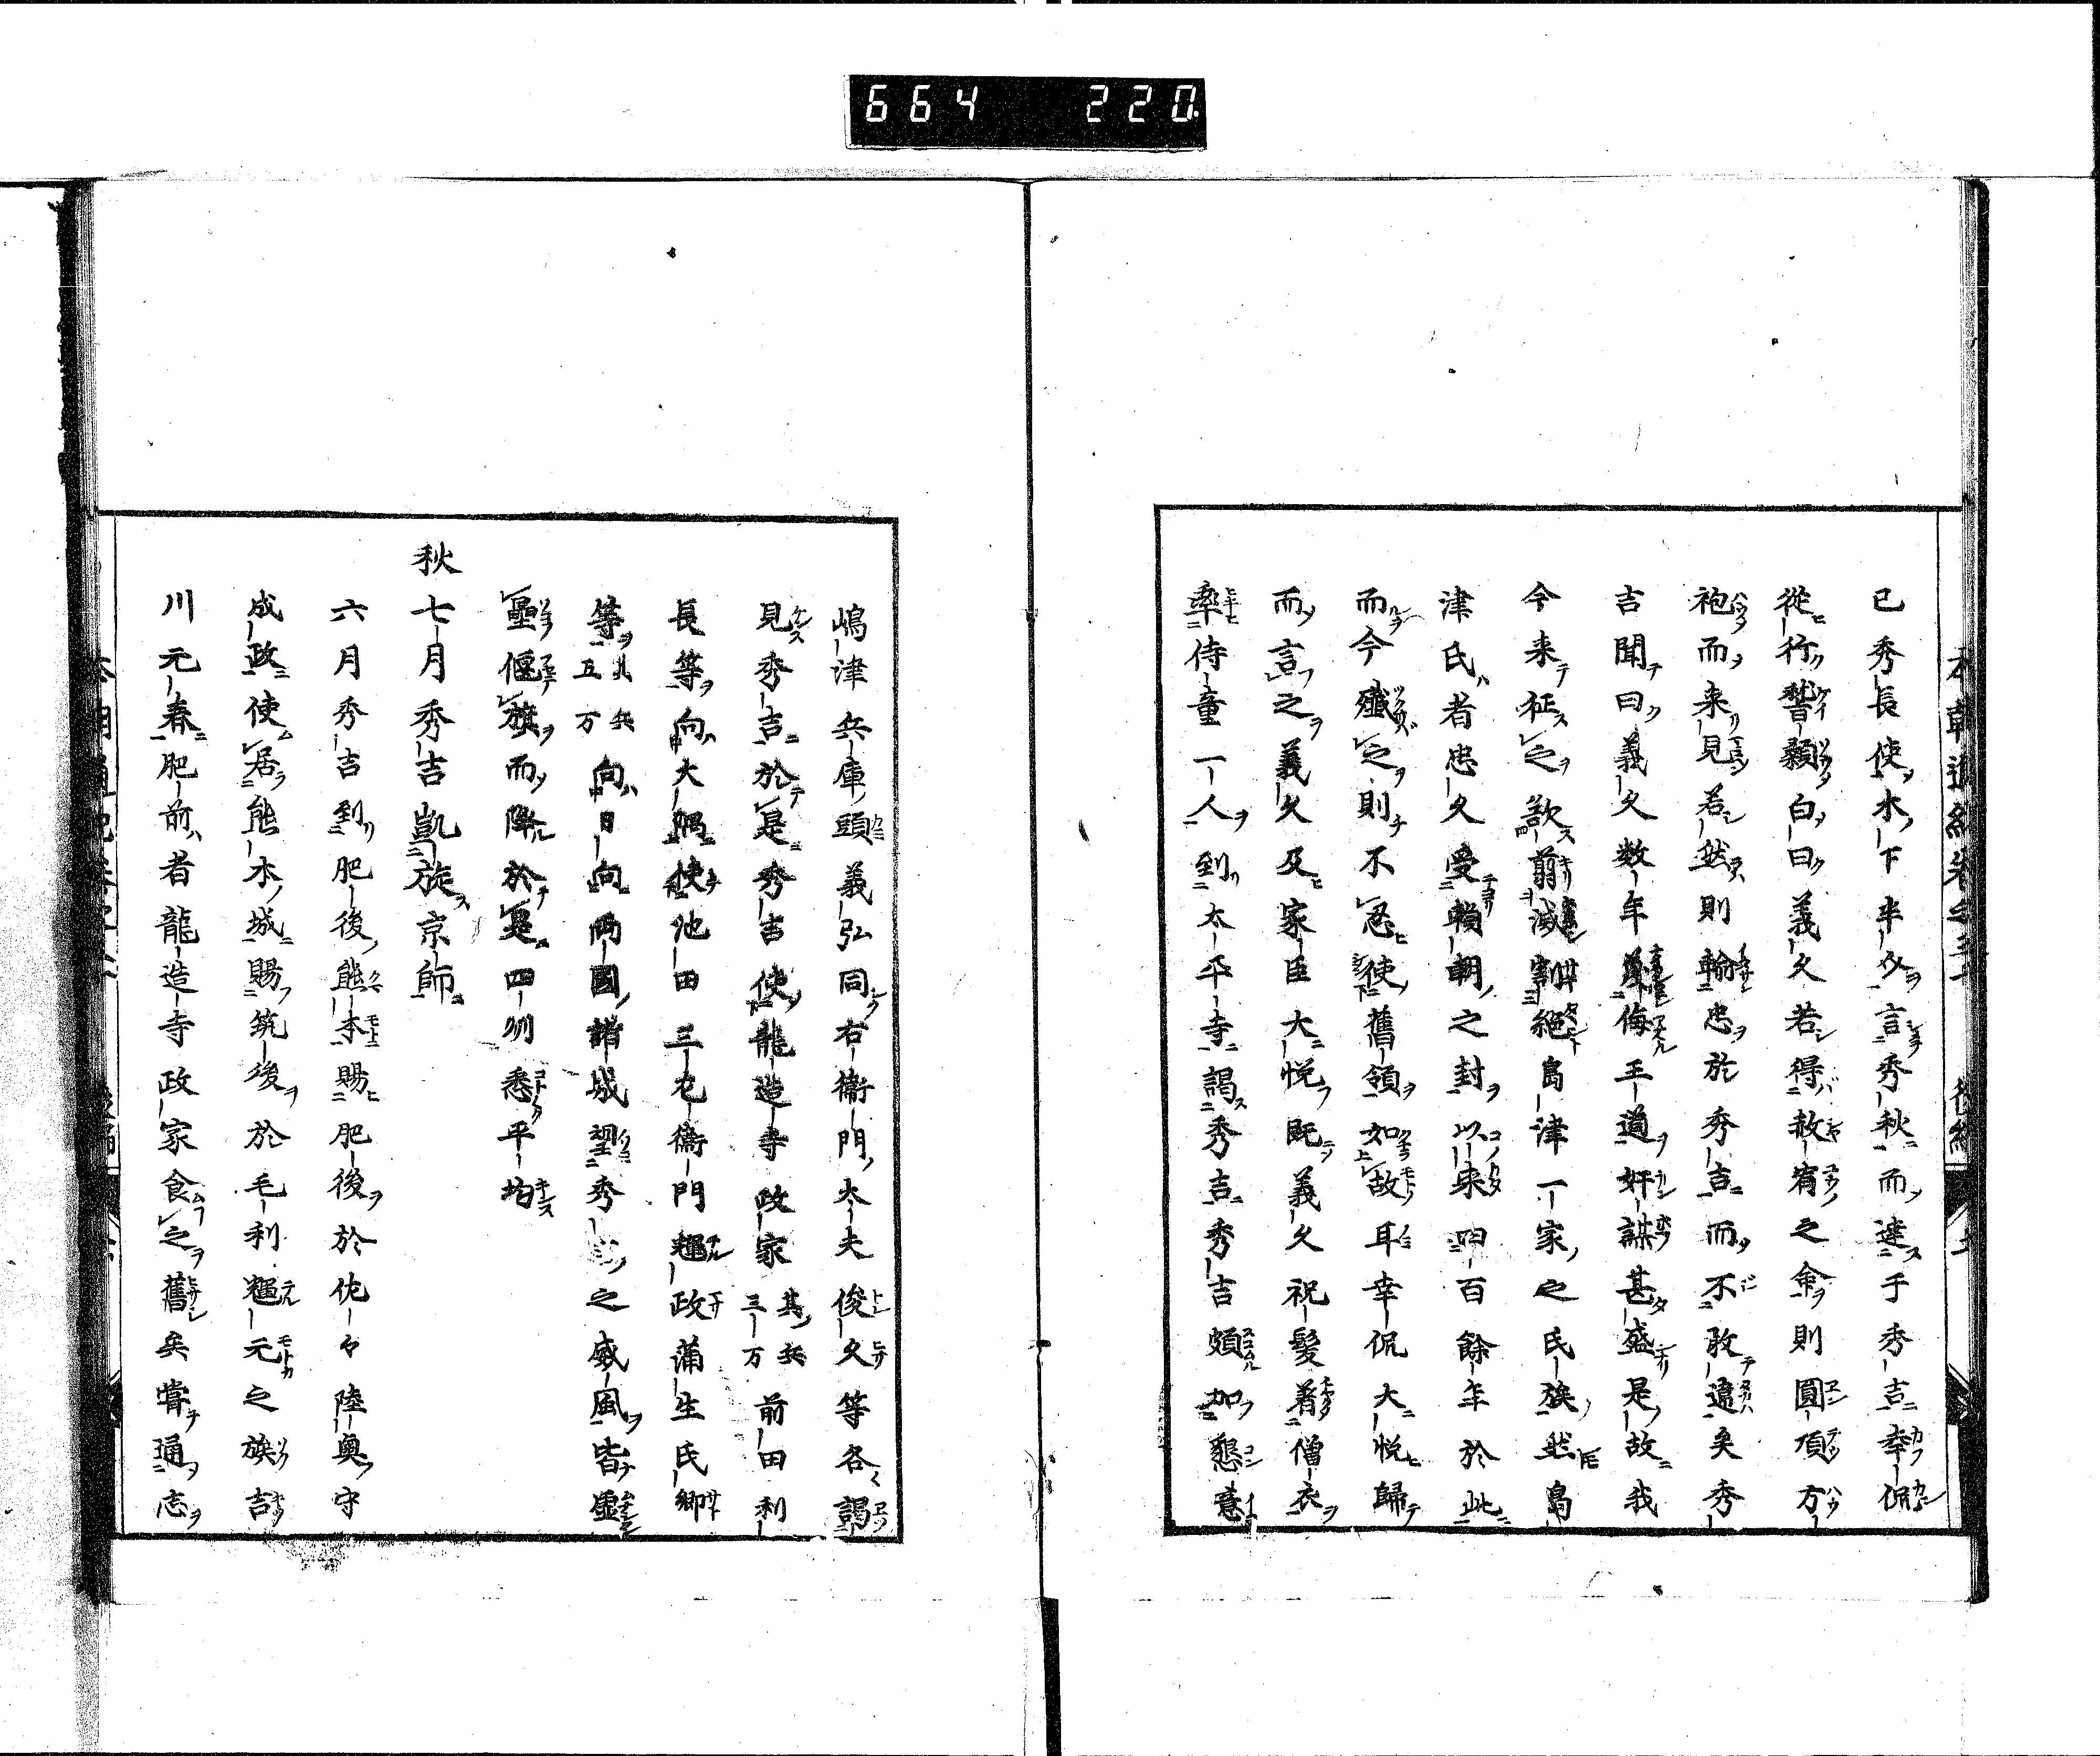 664 220
已秀長使水下半〻言秀秋而達于秀吉幸侃
従行嵆顙白曰義久若得赦宥之命則圓頂方
袍而来見若然則輸忠於秀吉而不敢違矣秀
吉聞曰義久数年蔑侮王道奸謀甚盛是故我
今来征之歘翦滅割絕島津一家之氏族然島
津氏者忠久受賴朝之封以来四百餘年於此
而今殲之則不忍使舊領如故耳幸侃大悦歸
而言之義久及家臣大悦既義久祝髮著僧衣
率侍童一人到太平寺謁秀吉秀吉頗加懇意
嶋津兵庫頭義弘同右衛門太夫俊久等各謁
見秀吉於是秀吉使龍造寺政家其兵三万前田利
長等向大隅使池田三左衛門輝政蒲生氏郷
等其兵五万向日向両國諸城望秀之威風皆壘
壘偃旗而降於是四州悉平均
秋七月秀吉凱旋京師
六月秀吉到肥後熊本賜肥後於佐々陸奥守
成政使居熊本城賜筑後於毛利輝元之族吉
川元春肥前者龍造寺政家食之舊矣嘗通志